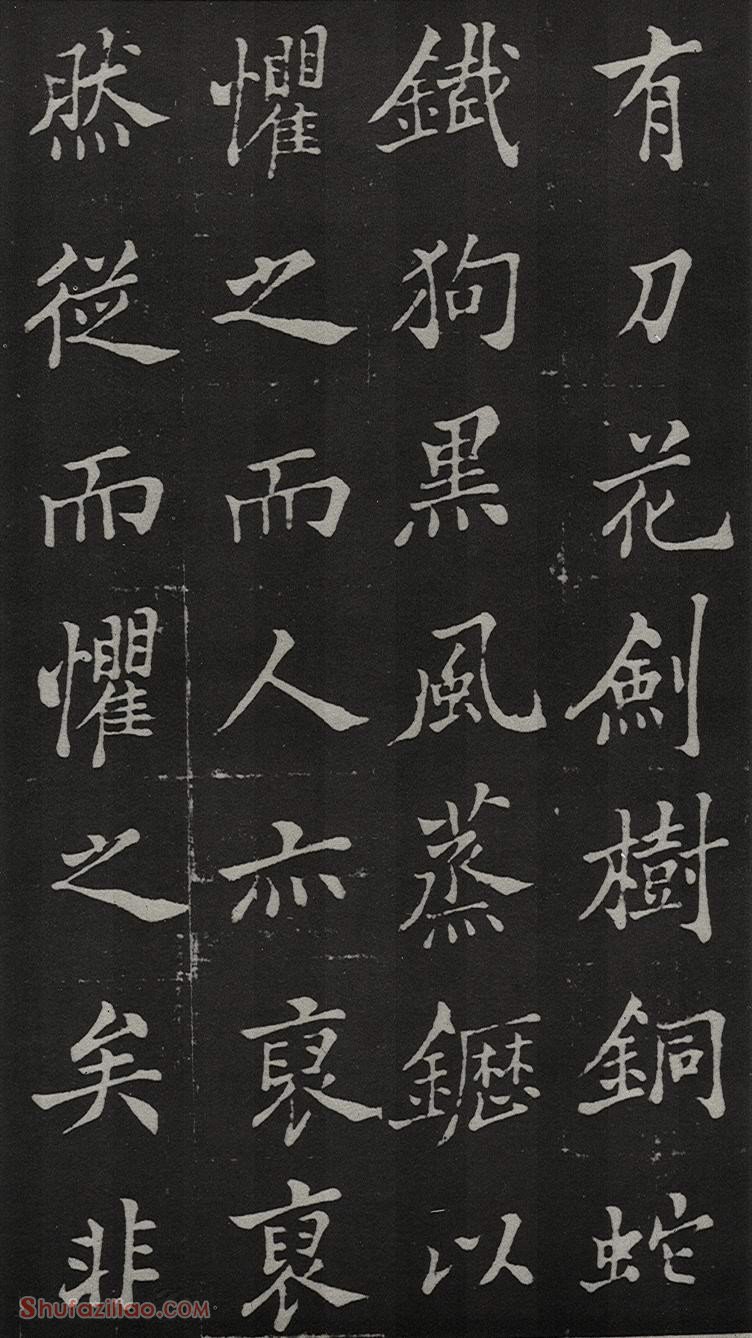 有刀花劍樹銅蛇
鐵狗黑風蒸鑩以
懼之而人亦裒裒
然從而懼之矣非
Shufaziliao.com